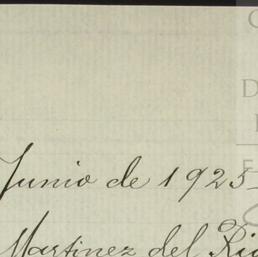 Junio de 1925
Martinez del Rio